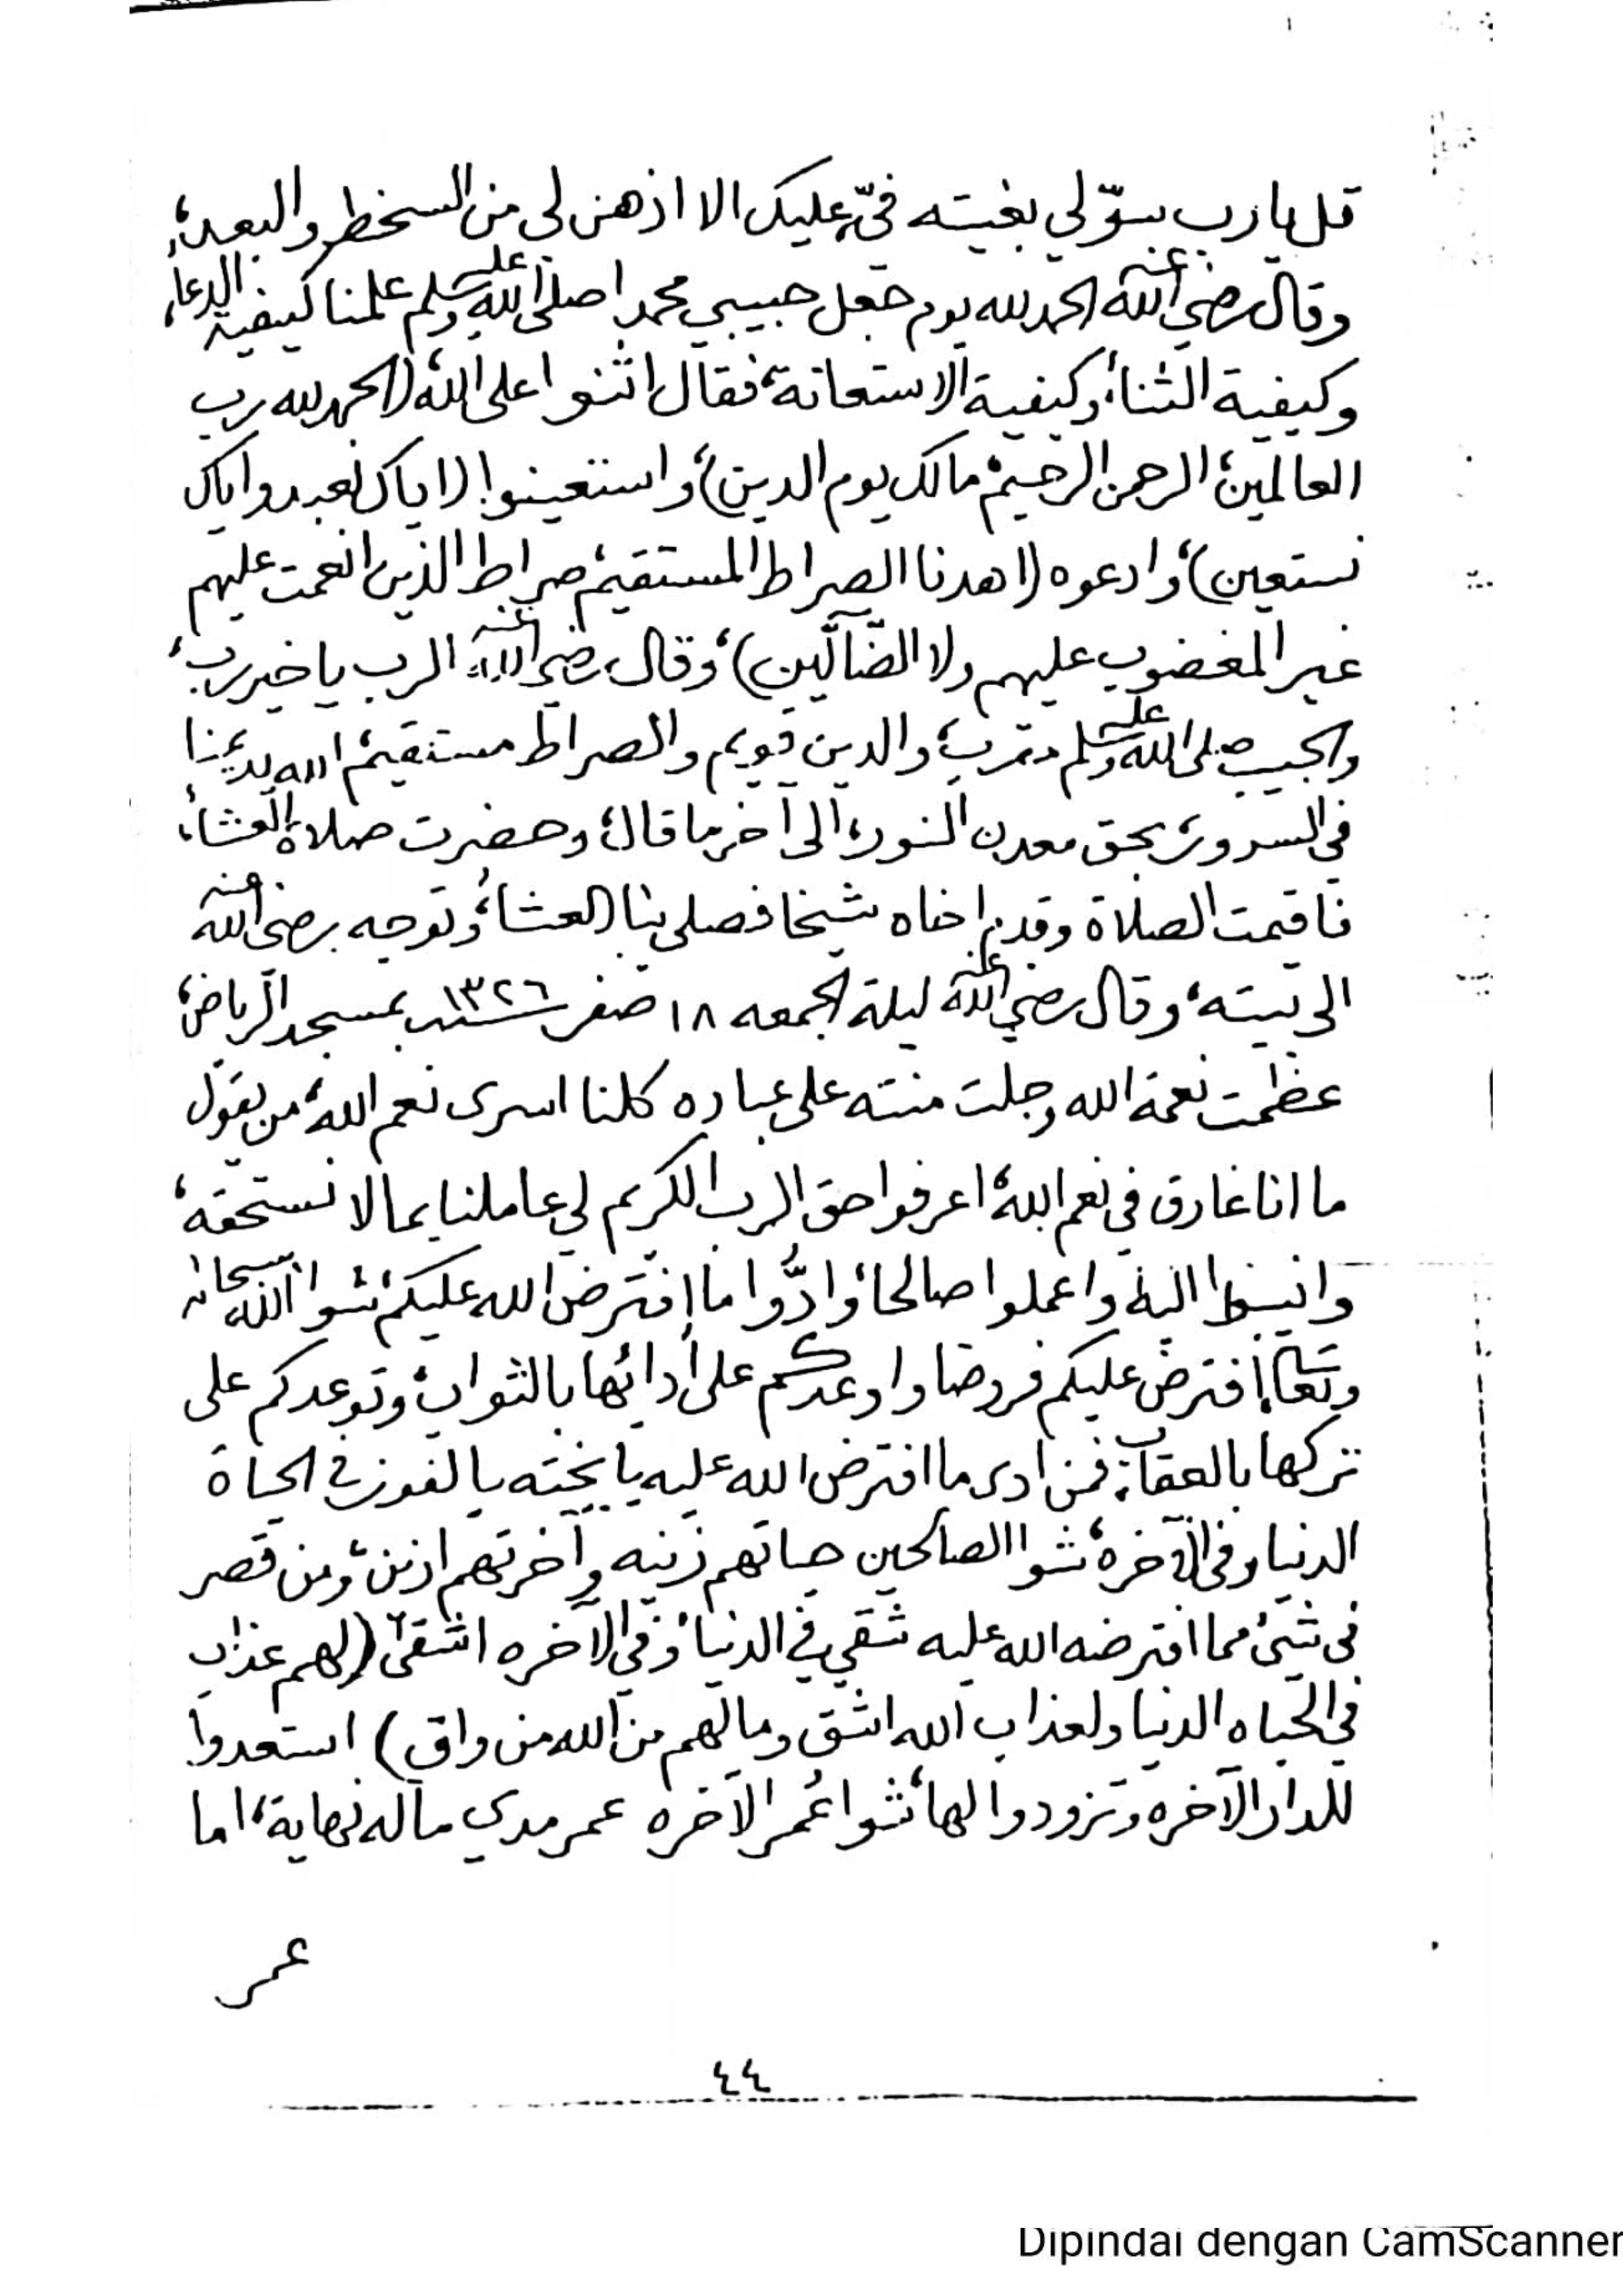 قل يارب سؤلي بغيته في عليك الا اذهن لى من السخط والبعد،
وقال رضي الله عنه الحمد لله يوم جعل حبيبي محمدا صلى الله عليه وسلم علمنا كيفية الدعاء،
وكيفية الثناء، وكيفية الاستعانة، فقال اثنوا على الله (الحمد لله رب
العالمين، الرحمن الرحيم، مالك يوم الدين)، واستعينوا (اياك نعبد واياك
نستعين)، وادعوه (اهدنا الصراط المستقيم، صراط الذين انعمت عليهم
غير المغضوب عليهم ولا الضآلّين)، وقال رضي الله عنه الرب يا خير رب،
والحبيب صلى الله عليه وسلم مقرب، والدين قويم والصراط مستقيم، الله يديمنا
في السرور، بحق معدن النور، الى آخر ما قال، وحضرت صلاة العشاء،
فاقيمت الصلاة وقدم اخاه شيخا فصلى بنا العشاء، وتوجه رضي الله عنه
الى بيته، وقال رضي الله عنه ليلة الجمعه ١٨ صفر سنة ١٣٢٦ بمسجد الرياض،
عظمت نعمة الله وجلت منته على عباده كلنا اسرى نعم الله، من يقول
ما انا غارق في نعم الله، اعرفوا حق الرب الكريم لي عاملنا بما لا نستحقه،
وانبسطوا اليه، واعملوا صالحا، وادُّوا ما افترض الله عليكم، شوا الله سبحانه
وتعالى افترض عليكم فروضا واوعدكم على أدائها بالثواب، وتوعدكم على
تركها بالعقاب، فمن ادى ما افترض الله عليه يا بخته يا لفوز في الحياة
الدنيا وفى الآخره، شوا الصالحين حياتهم زينه وآخرتهم ازين، ومن قصر
في شيئ مما افترضه الله عليه شقي في الدنيا، وفي الآخره اشقى (لهم عذاب
في الحياه الدنيا ولعذاب الله اشق ومالهم من الله من واق) استعدوا
للدار الآخره وتزودوا لها، شوا عُمر الآخره عمر مدى ماله نهاية، اما
عمر
٤٤
Dipindai dengan CamScanner